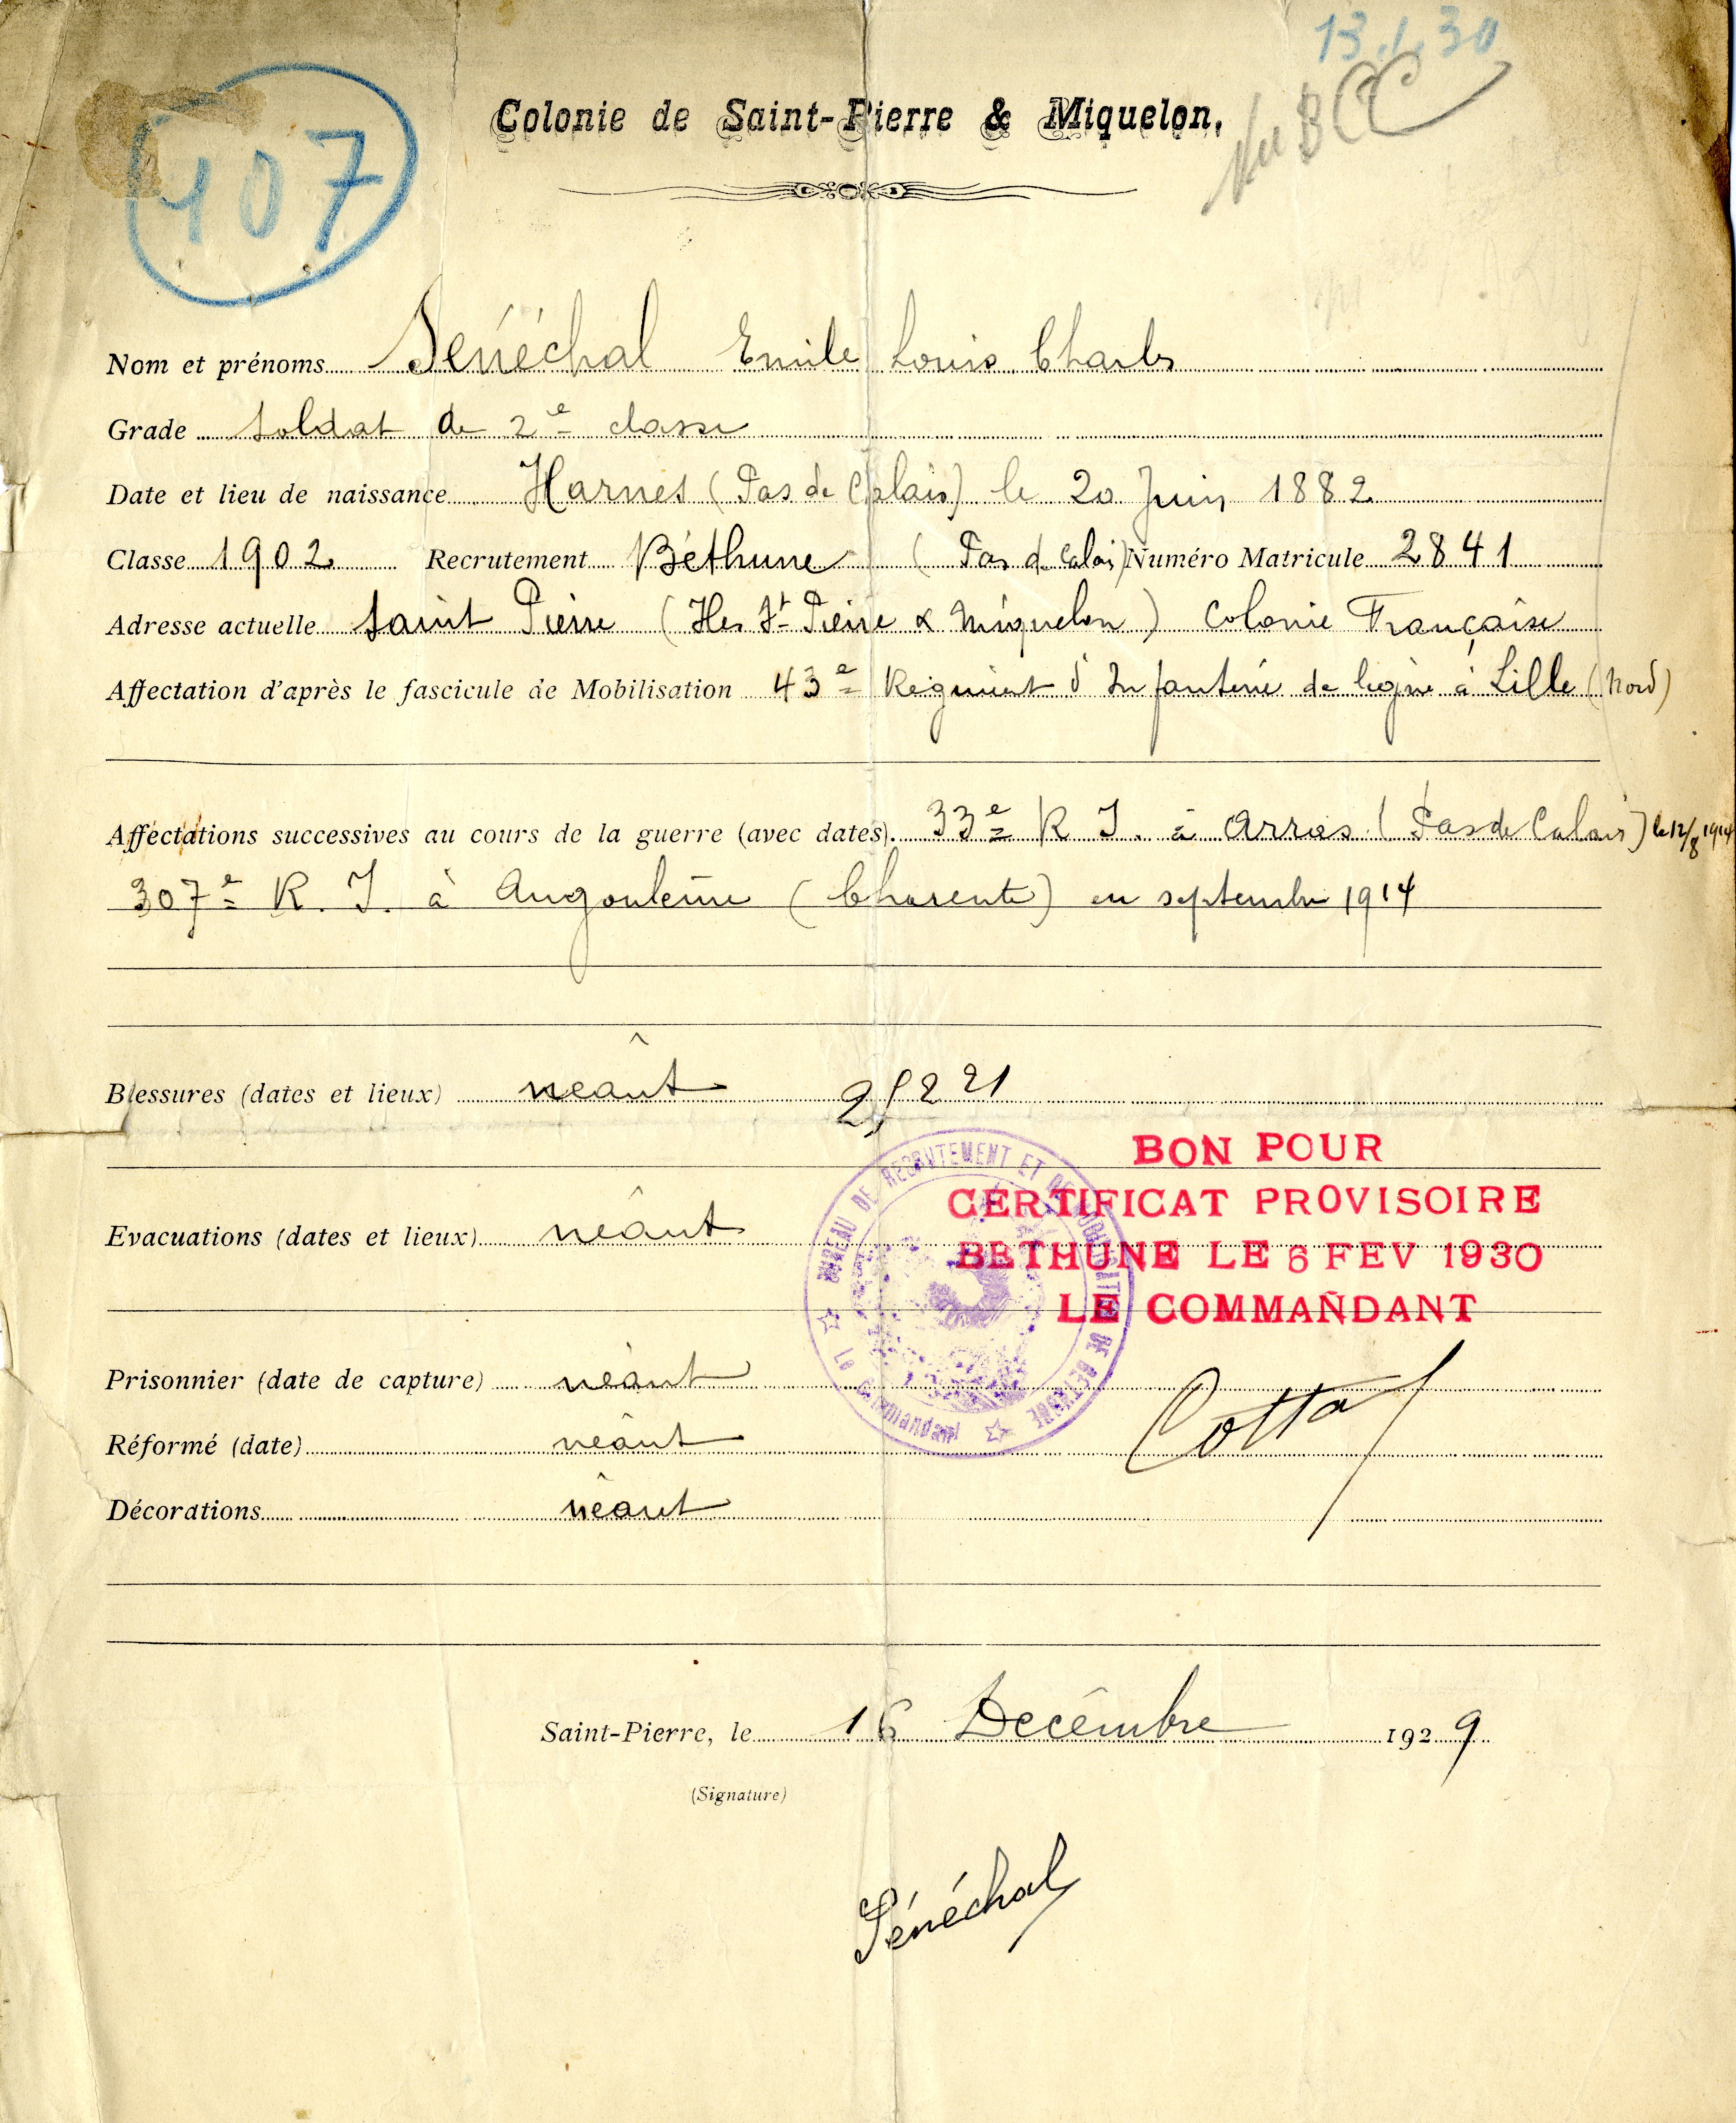 13.1.30
107
Vu BCC
Colonie de Saint-Pierre & Miquelon,
Nom et prénoms Sénéchal Emile Louis Charles
Grade soldat de 2e classe
Date et lieu de naissance Harnes (Pas de Calais) le 20 Juin 1882
Classe 1902 Recrutement Béthune (Pas de Calais) Numéro Matricule 2841
Adresse actuelle Saint Pierre (Iles St Pierre & Miquelon) Colonie Française
Affectation d'après le fascicule de Mobilisation 43e Régiment d'Infanterie de ligne à Lille (Nord)
Affectations successives au cours de la guerre (avec dates). 33e R I. à Arras (Pas de Calais) le 12/8 1914
307e R. I. à Angoulême (Charente) en septembre 1914
Blessures (dates et lieux) néant
Evacuations (dates et lieux) néant
BON POUR
CERTIFICAT PROVISOIRE
BETHUNE LE 6 FEV 1930
LE COMMANDANT
BUREAU DE RECRUTEMENT ET DE MOBILISATION DE BETHUNE
Le Commandant
Prisonnier (date de capture) néant
Réformé (date) néant
Décorations néant
Saint-Pierre, le 16 Décembre 1929
(Signature)
Sénéchal